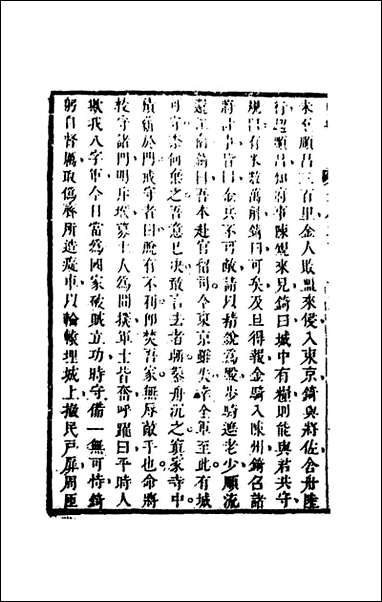 未至順昌三百里金人敗盟來侵入東京錡與將佐舍舟陸
行趨順昌知府事陳規來見錡曰城中有糧則能與君共守
規曰有米數萬斛錡曰可矣及旦得報金騎入陳州錡召諸
將計事皆曰金兵不可敵請以精銳為殿步騎遮老少順流
還江南錡曰吾本赴官留司今東京雖失幸全軍至此有城
可守奈何棄之吾意已決敢言去者斬鑿舟沉之寘家寺中
積薪於門戒守者曰脫有不利即焚吾家無辱敵手也命將
較守諸門明斥堠募土人為間探軍士皆奮呼躍曰平時人
欺我八字軍今日當為國家破賊立功時守備一無可恃錡
躬自督厲取偽齊所造癡車以輪轅埋城上撤民戶扉周匝